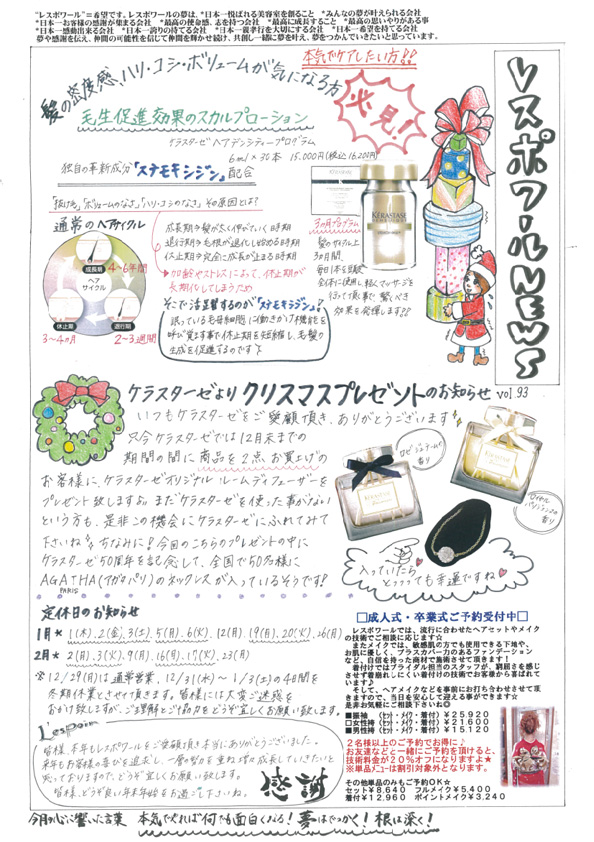 "レスポワール"＝希望です。レスポワールの夢は、*日本一悦ばれる美容室を創ること　*みんなの夢が叶えられる会社
*日本一お客様の感謝が集まる会社　*最高の使命感、志を持つ会社　*最高に成長すること　*最高の思いやりがある事
*日本一感動出来る会社　*日本一誇りの持てる会社　*日本一親孝行を大切にする会社　*日本一希望を持てる会社
夢や感謝を伝え、仲間の可能性を信じて仲間を輝かせ続け、共創し一緒に夢を叶え、夢をつかんでいきたいと思っています。
レスポワールNEWS
vol.93
本気でケアしたい方!!
必見!
髪の密度感、ハリ・コシ・ボリュームが気になる方
毛生促進効果のスカルプローション
ケラスターゼ ヘアデンシティープログラム
6ml×30本 15,000円(税込16,200円)
独自の革新成分「ステモキシジン」配合
「抜け毛」「ボリュームのなさ」「ハリ・コシのなさ」その原因とは?
通常のヘアサイクル
成長期
4〜6年間
ヘア
サイクル
休止期
退行期
3〜4カ月
2〜3週間
成長期→髪が太く伸びていく時期
退行期→毛根が退化し始める時期
休止期→完全に成長が止まる時期
加齢やストレスにおいて、休止期が
長期化してしまうため
そこで活躍するのが「ステモキシジン」!
眠っている毛母細胞に働きかけ機能を
呼び覚ます事で休止期を短縮し、毛髪の
生成を促進するのです
KÉRASTASE
3ヵ月プログラム
髪のサイクル上
3ヵ月間、
毎日1本を頭皮
全体に使用し、軽くマッサージを
行って頂く事で驚くべき
効果を発揮します!!
ケラスターゼより クリスマスプレゼントのお知らせ
いつもケラスターゼをご愛顧頂き、ありがとうございます
只今ケラスターゼでは12月末までの
期間の間に商品を2点お買上げの
お客様に、ケラスターゼオリジナルルームディフューザーを
プレゼント致しますよ。まだケラスターゼを使った事がない
という方も、是非この機会にケラスターゼにふれてみて
下さいね ちなみに!今回のこちらのプレゼントの中に
ケラスターゼ50周年を記念して、全国で50名様に
AGATHA(アガタパリ)のネックレスが入っているそうです!
PARIS
香り
香り
入っていたら
とってっても幸運ですね
定休日のお知らせ
1月* 1(木), 2(金), 3(土), 5(月), 6(火), 12(月), 19(月), 20(火), 26(月)
2月* 2(月), 3(火), 9(月), 16(月), 17(火), 23(月)
※12/29(月)は通常営業、12/31(水)〜1/3(土)の4日間を
冬期休業とさせて頂きます。皆様には大変ご迷惑を
おかけ致しますが、ご理解とご協力をどうぞ宜しくお願い致します。
L'espoir
皆様、本年もレスポワールをご愛顧頂き本当にありがとうございました。
来年もお客様の喜びを追求し、一層の努力を重ね増々成長していきたいと
思っておりますので、どうぞ宜しくお願い致します。
皆様、どうぞ良い年末年始をお過ごし下さいね。
感謝
□成人式・卒業式ご予約受付中□
レスポワールでは、流行に合わせたヘアセットやメイク
の技術でご相談に応じます☆
またメイクでは、敏感肌の方でも使用できる下地や、
お肌に優しく、プラスカバー力のあるファンデーション
など、自信を持った商材で施術させて頂きます!
着付けではブライダル担当のスタッフが、窮屈さを感じ
させず着崩れしにくい着付けの技術でお客様から喜ばれて
います♪
そして、ヘアメイクなどを事前にお打ち合わせさせて頂
きますので、当日を安心して迎える事ができます☆
是非お気軽にご相談下さい◎
■振袖 (セット・メイク・着付) ¥25,920
□女性袴 (セット・メイク・着付) ¥21,600
■男性袴 (セット・メイク・着付) ¥15,120
2名様以上のご予約でお得に♪
お友達などと一緒にご予約を頂けると、
技術料金が20%オフになりますよ★
※単品メニューは割引対象外となります。
その他単品のみもご予約OK☆
セット¥8,640　フルメイク¥5,400
着付¥12,960　ポイントメイク¥3,240
今月の心に響いた言葉　本気で笑れば何でも面白くなる!夢はでっかく!根は深く!